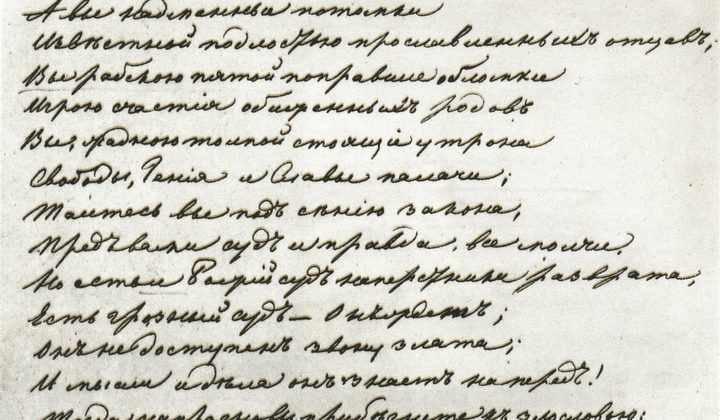 А вы надменныя потомки
Извѣстной подлостью прославленныхъ отцевъ;
Вы рабскою пятой поправшие обломки
Игрою счастія обиженныхъ родовъ
Вы, жадною толпой стоящіе у трона
Свободы, Генія и Славы палачи;
Таитесь вы подъ сѣнію закона,
Предъ вами судъ и правда, все молчи.
Но есть и Божій судъ наперсники разврата,
Есть грозный судъ — Онъ ждетъ;
Онъ не доступенъ звону злата;
И мысли и дѣла онъ знаетъ напередъ!
Тогда напрасно вы прибѣгните къ злословью: